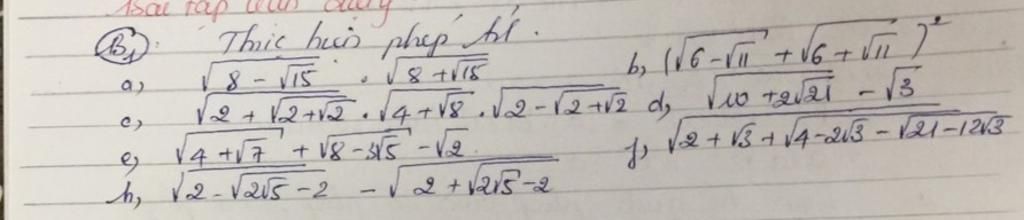 Bài tập
B1: Thực hiện phép tí.
a, √(8 - √15) . √(8 + √15) b, (√(6 - √11) + √(6 + √11))²
c, √(2 + √(2 + √2)) . √(4 + √8) . √(2 - √(2 + √2)) d, √(10 + 2√21) - √3
e, √(4 + √7) + √(8 - 3√5) - √2 f, √(2 + √3 + √(4 - 2√3 - √(21 - 12√3)))
h, √(2 - √(2√5 - 2)) - √(2 + √(2√5 - 2))